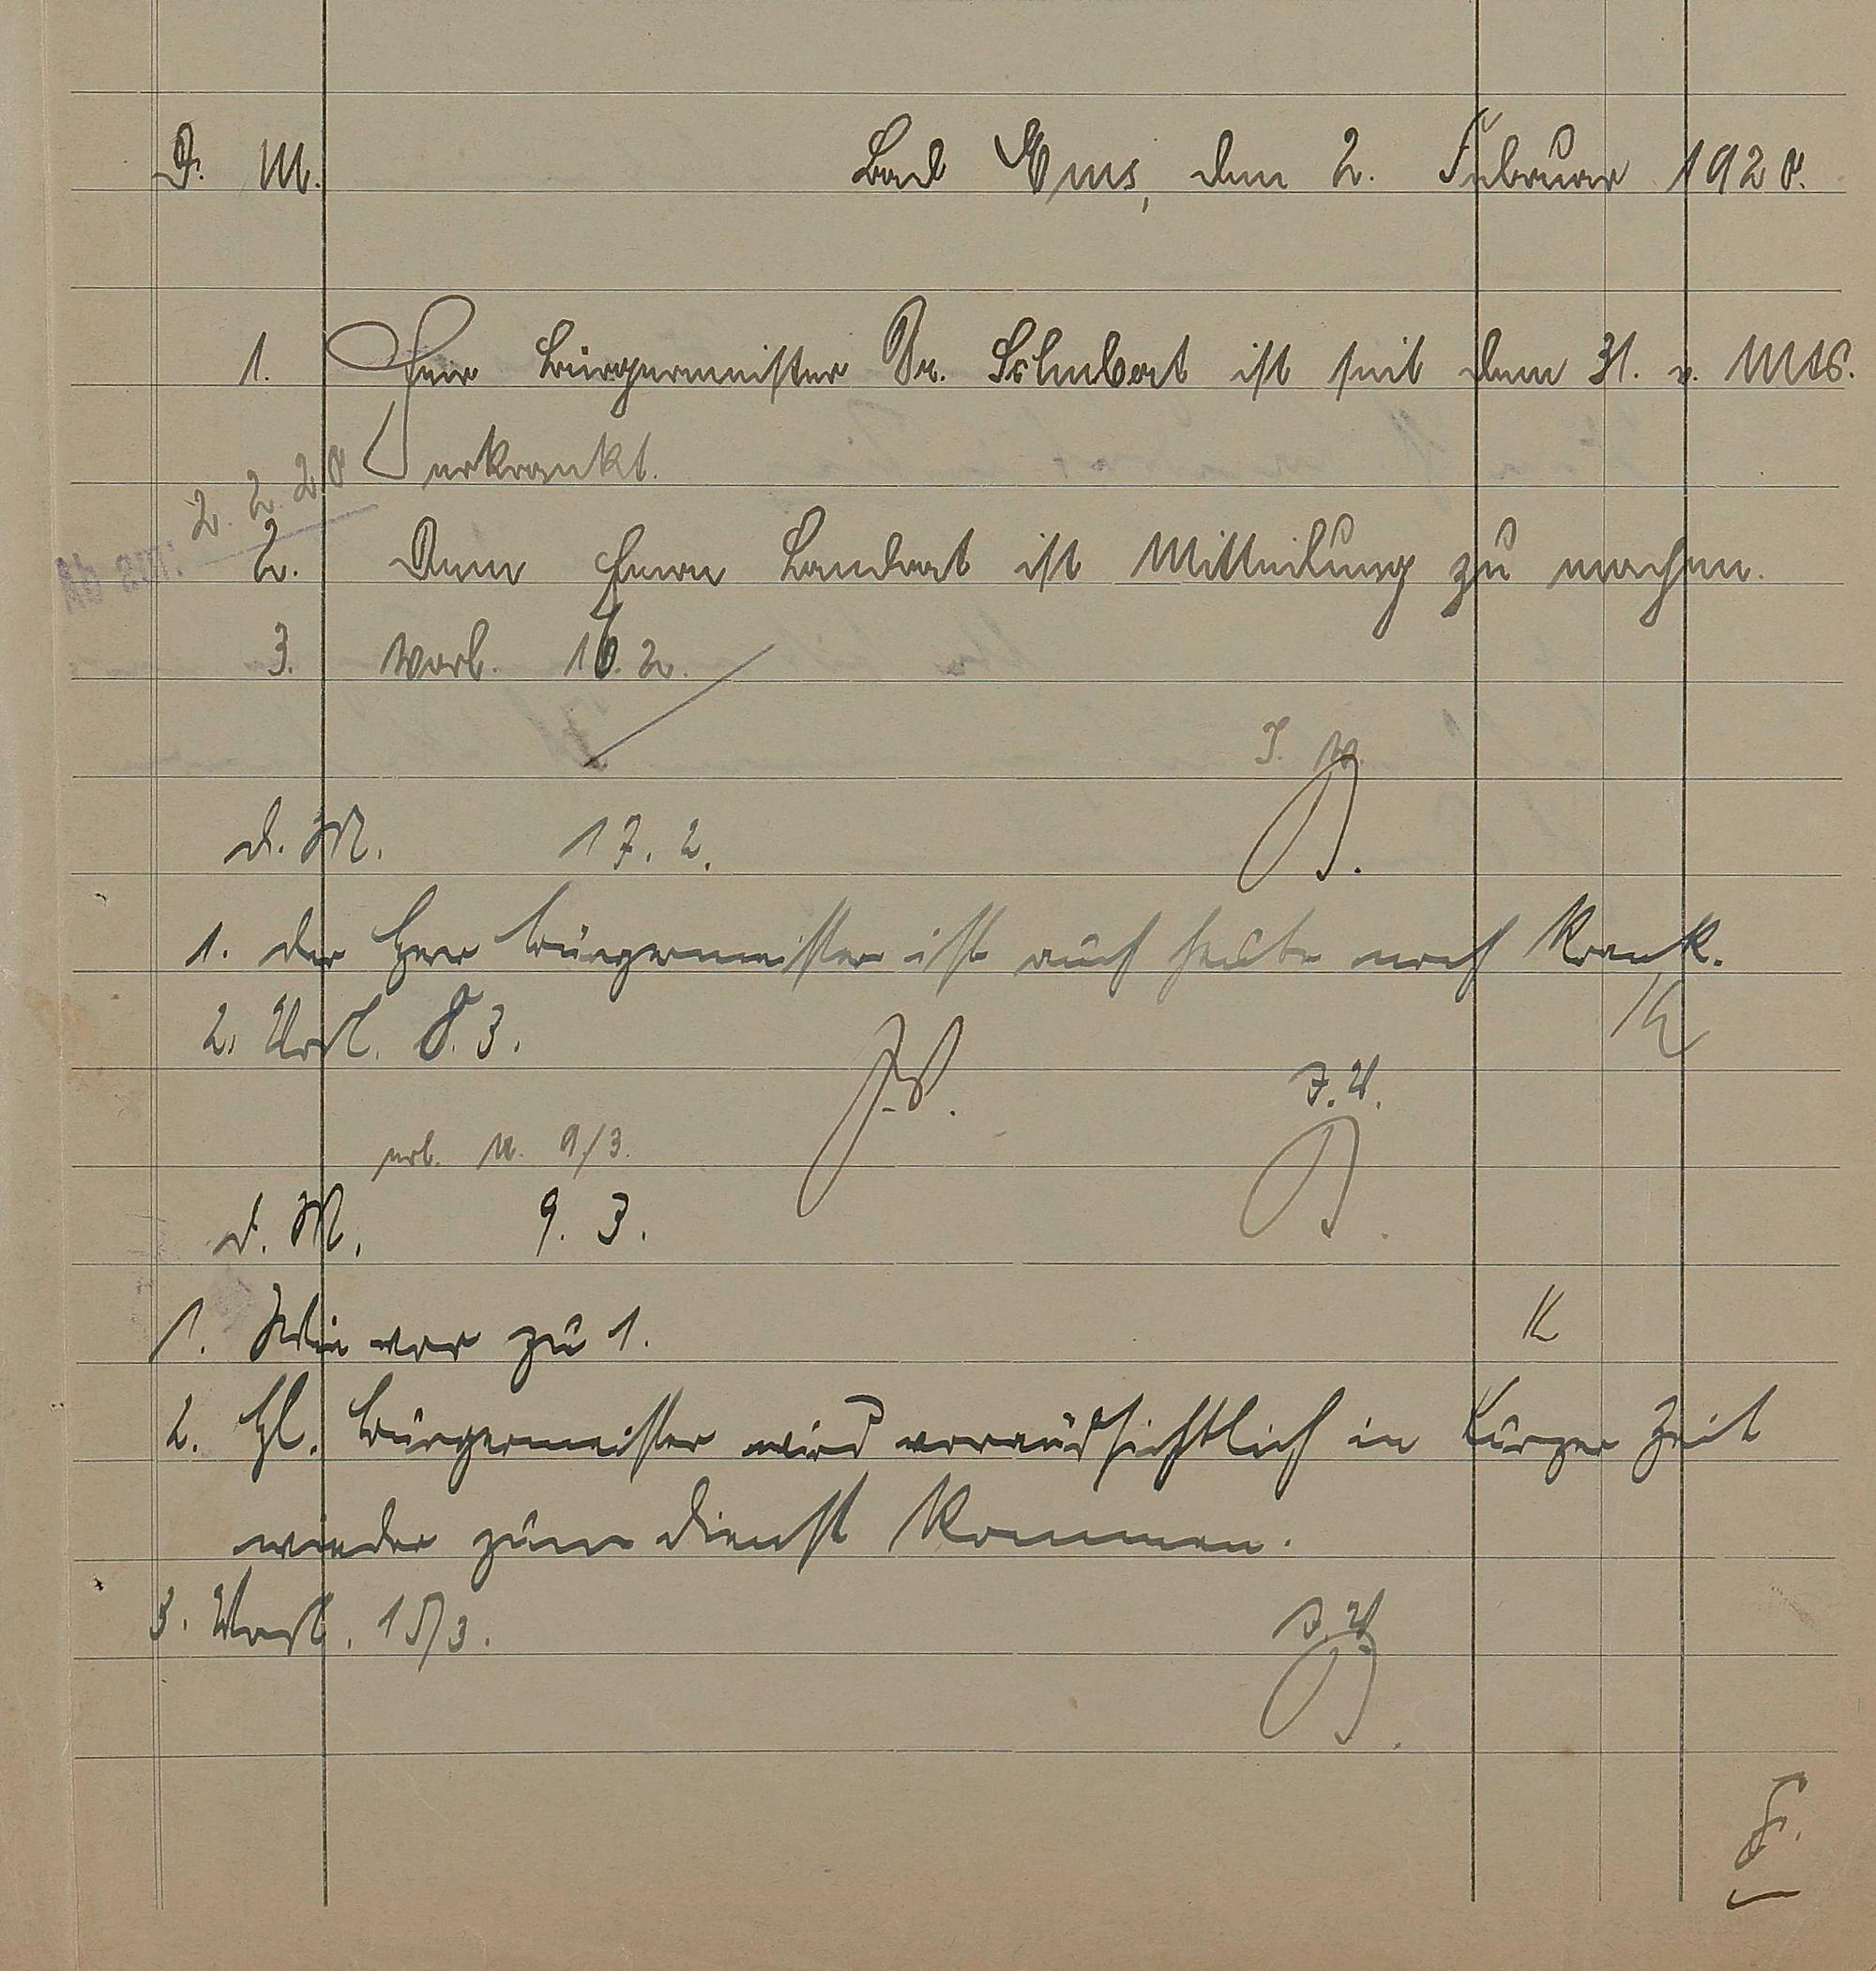 D. M. Bad Ems, den 2. Februar 1928.
1. Herr Bürgermeister Dr. Schubert ist seit dem 31. v. Mts.
erkrankt.
2. 2. 28
2. Dem Herrn Landrat ist Mitteilung zu machen.
3. Worl. 16. 2.
I. V.
D. M. 17. 2.
1. Der Herr Bürgermeister ist auch heute noch krank.
2. Worl. 8. 3.
I. V.
9/3.
D. M. 9. 3.
1. Wie vor zu 1.
2. H. Bürgermeister wird voraussichtlich in kurzer Zeit
wieder zum Dienst kommen.
3. Worl. 15/3.
I. V.